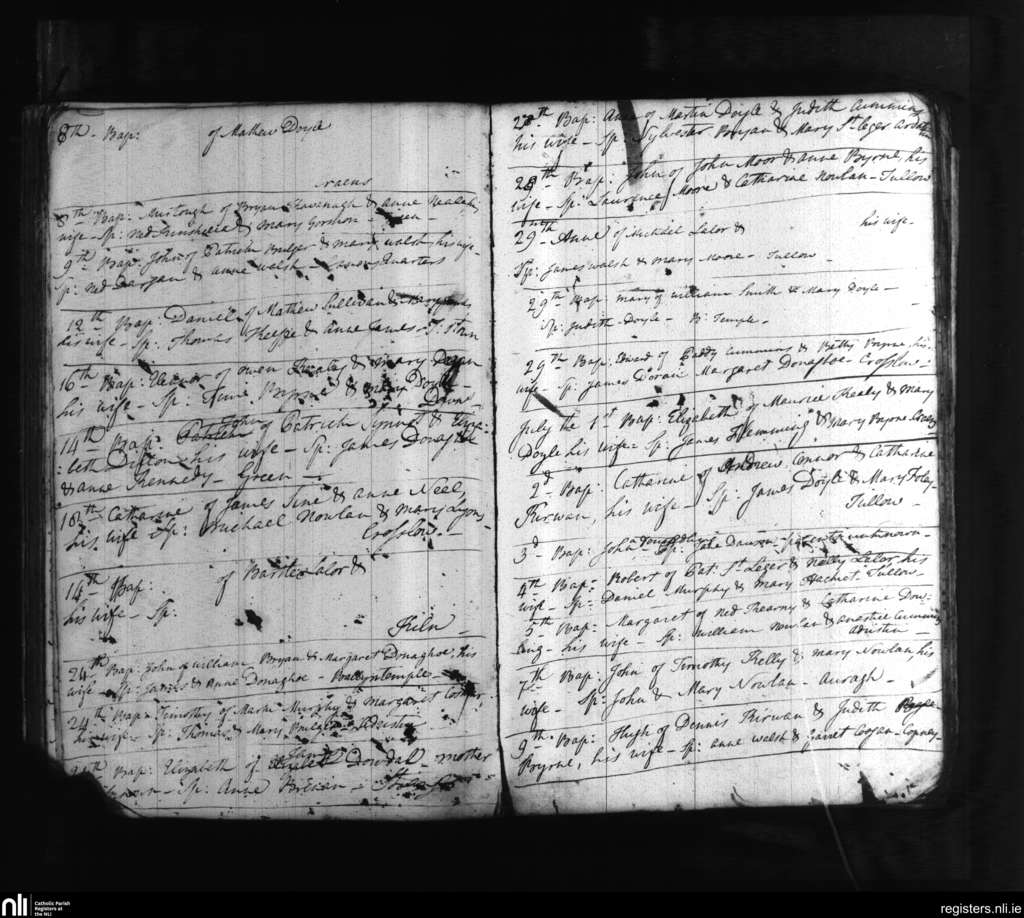 8th - Bap: of Mathew Doyle
raens
8th Bap: Murtough of Bryan Kavenagh & Anne
wife - Sp: Ned & Mary
9th Bap: John of Patrick Bulger & Mary Walsh, his wife -
Sp: Ned Dargan & Anne Walsh - Quarters
12th Bap: Daniel of Mathew Sullivan &
his wife - Sp: Thomas Keeffe & Anne James -
16th Bap: Elenor of Owen & Mary
his wife - Sp: Byrne & Mary Doyle
Down -
14th Bap: John of Patrick Synnot & Eliza-
:beth Dillon his wife - Sp: James Donaghoe
& Anne Kennedy - Green -
18th Catharine of James & Anne Neel,
his wife Sp: Michael Nowlan & Mary Lyon,
Crosslow. -
14th Bap: of Lalor &
his wife - Sp:
Kiln -
24th Bap: John of William Bryan & Margaret Donaghoe, his
wife - Sp: James & Anne Donaghoe - Ballyntemple -
24th Bap: Timothy of Mark Murphy & Margaret
his wife - Sp: Thomas & Mary
Bap: Elizabeth of Dowdal - mother
- Sp: Anne
28th Bap: Anne of Martin Doyle & Judith Cummins
his wife - Sp: Sylvester Bryan & Mary St Leger
28th Bap: John of John Moor & Anne Byrne, his
wife - Sp: Laurence Moore & Catharine Nowlan - Tullow
29th - Anne of Michael Lalor & his wife -
Sp: James Walsh & Mary Moore - Tullow -
29th Bap: Mary of William Smith & Mary Doyle -
Sp: Judith Doyle - B: Temple -
29th Bap: Edward of Paddy Cummins & Betty Payne, his
wife - Sp: James Doran Margaret Donaghoe - Crosslow -
July the 1st Bap: Elizabeth of Maurice Kealy & Mary
Doyle his wife - Sp: James Flemming & Mary Byrne
2d Bap: Catharine of Andrew Connor & Catharine
Kirwan, his wife - Sp: James Doyle & Mary Foley
Tullow -
3d - Bap: John Sp: Jane Dawson - parents unknown -
4th Bap: Robert of Pat: St Leger & Nelly Lalor his
wife - Sp: Daniel Murphy & Mary Hacket. Tullow
5th Bap: Margaret of Ned Kearny & Catharine Dow-
ling - his wife - Sp: William Nowlan & Cummins
7th Bap: John of Timothy Kelly & Mary Nowlan, his
wife - Sp: John & Mary Nowlan - Auragh -
9th Bap: Hugh of Dennis Kirwan & Judith
Byrne, his wife - Sp: Anne Walsh & Garret Cogan -
nli
Catholic Parish
Registers at
the NLI
registers.nli.ie